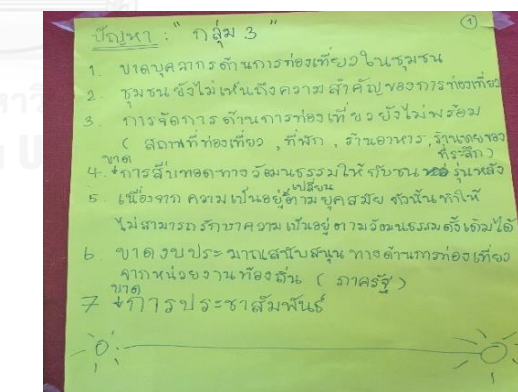 ปัญหา : " กลุ่ม 3 "
1
1. ขาดบุคลากรด้านการท่องเที่ยวในชุมชน
2. ชุมชนยังไม่เห็นถึงความสำคัญของการท่องเที่ยว
3. การจัดการด้านการท่องเที่ยวยังไม่พร้อม
( สถานที่ท่องเที่ยว , ที่พัก , ร้านอาหาร , ร้านขายของ
ที่ระลึก )
4. ขาดการสืบทอดทางวัฒนธรรมให้กับชนรุ่นหลัง
5. เนื่องจาก ความเป็นอยู่เปลี่ยนตามยุคสมัย ดังนั้นทำให้
ไม่สามารถรักษาความเป็นอยู่ตามวัฒนธรรมดั้งเดิมได้
6. ขาดงบประมาณสนับสนุนทางด้านการท่องเที่ยว
จากหน่วยงานท้องถิ่น ( ภาครัฐ )
7 ขาดการประชาสัมพันธ์